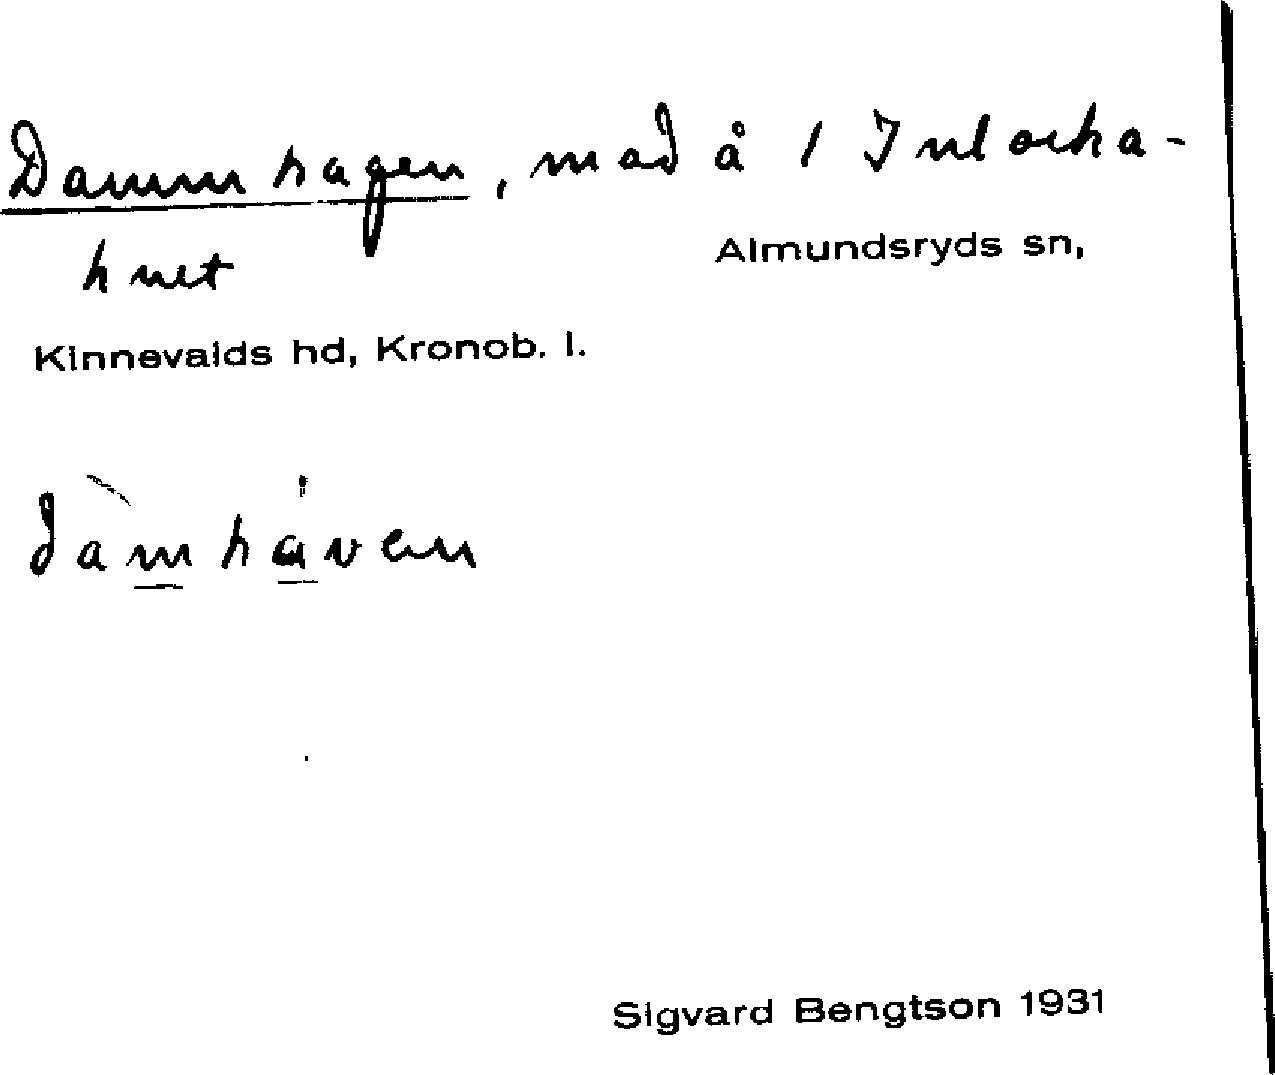 Dammhagen, mad å 1 Julocka-
hult
Almundsryds sn,
Kinnevalds hd, Kronob. l.
damhaven
Sigvard Bengtson 1931